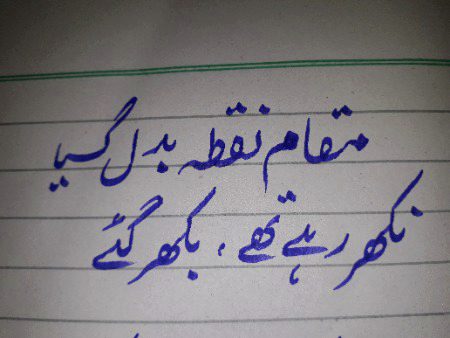 مقام نقطہ بدل گیا
نکھر رہے تھے، بکھر گئے